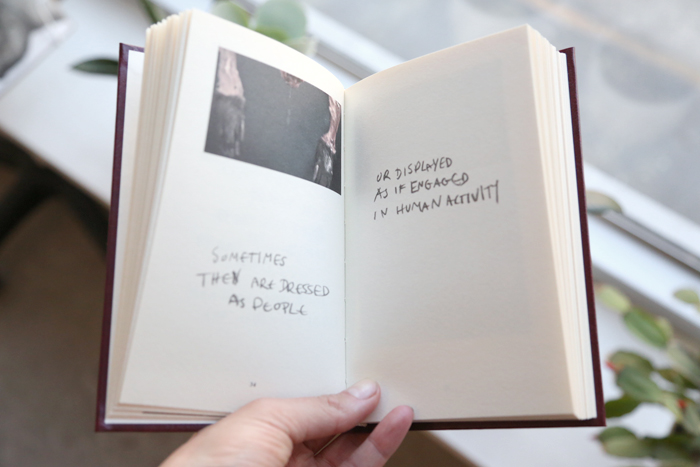 SOMETIMES
THEY ARE DRESSED
AS PEOPLE
OR DISPLAYED
AS IF ENGAGED
IN HUMAN ACTIVITY